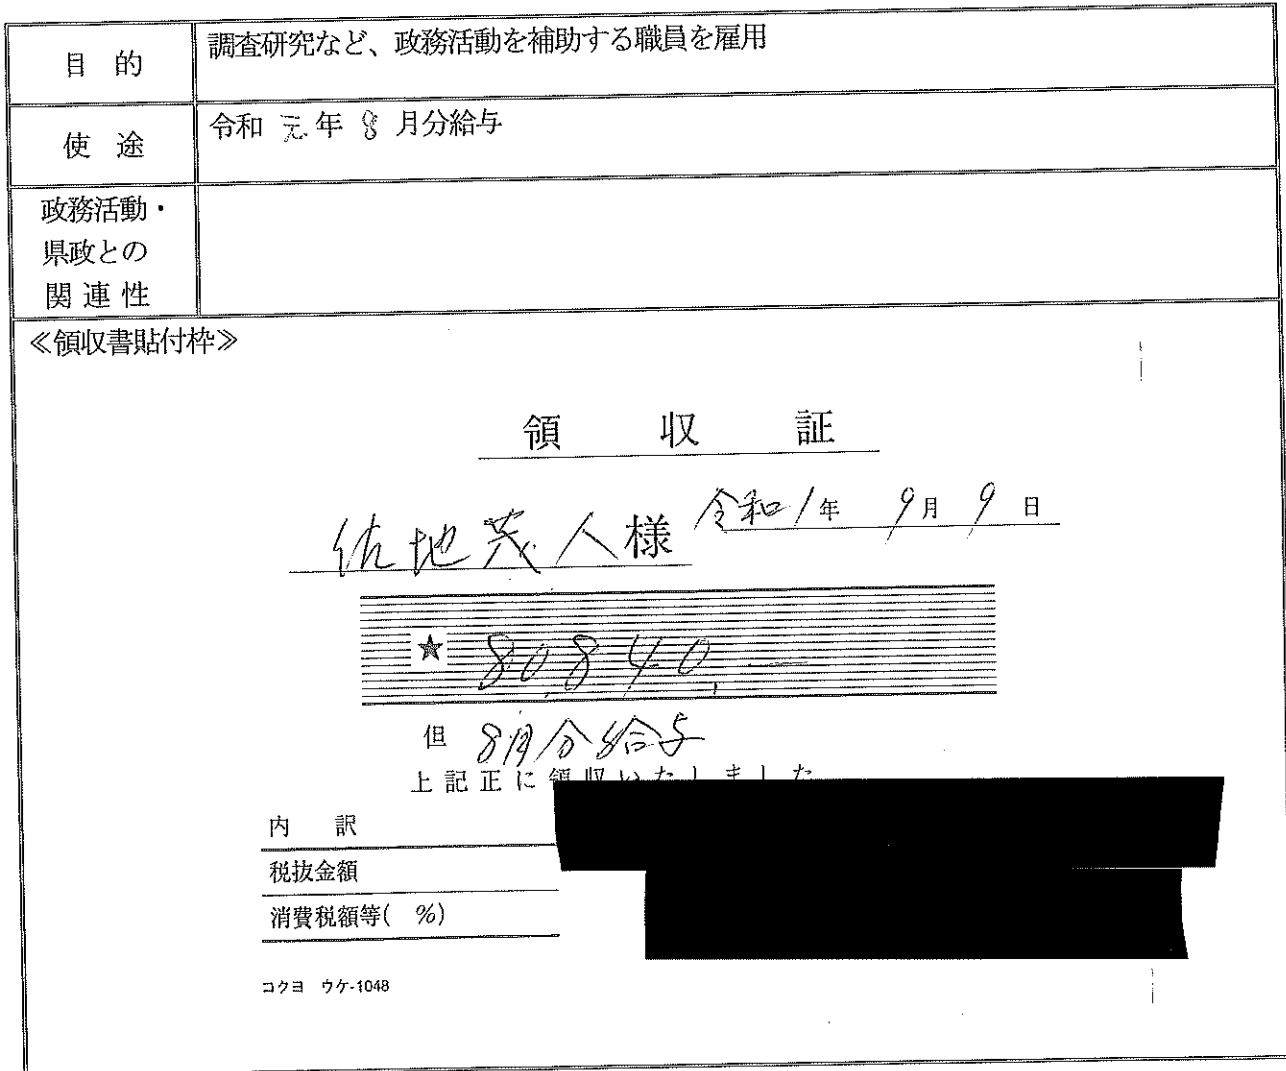 目 的
調査研究など、政務活動を補助する職員を雇用
使 途
令和 元 年 8 月分給与
政務活動・
県政との
関 連 性
≪領収書貼付枠≫
領 収 証
令和1年 9月 9日
佐地茂人様
★ 80,840,—
但 8月分給与
上記正に領収いたしました
内 訳
税抜金額
消費税額等( %)
コクヨ ウケ-1048